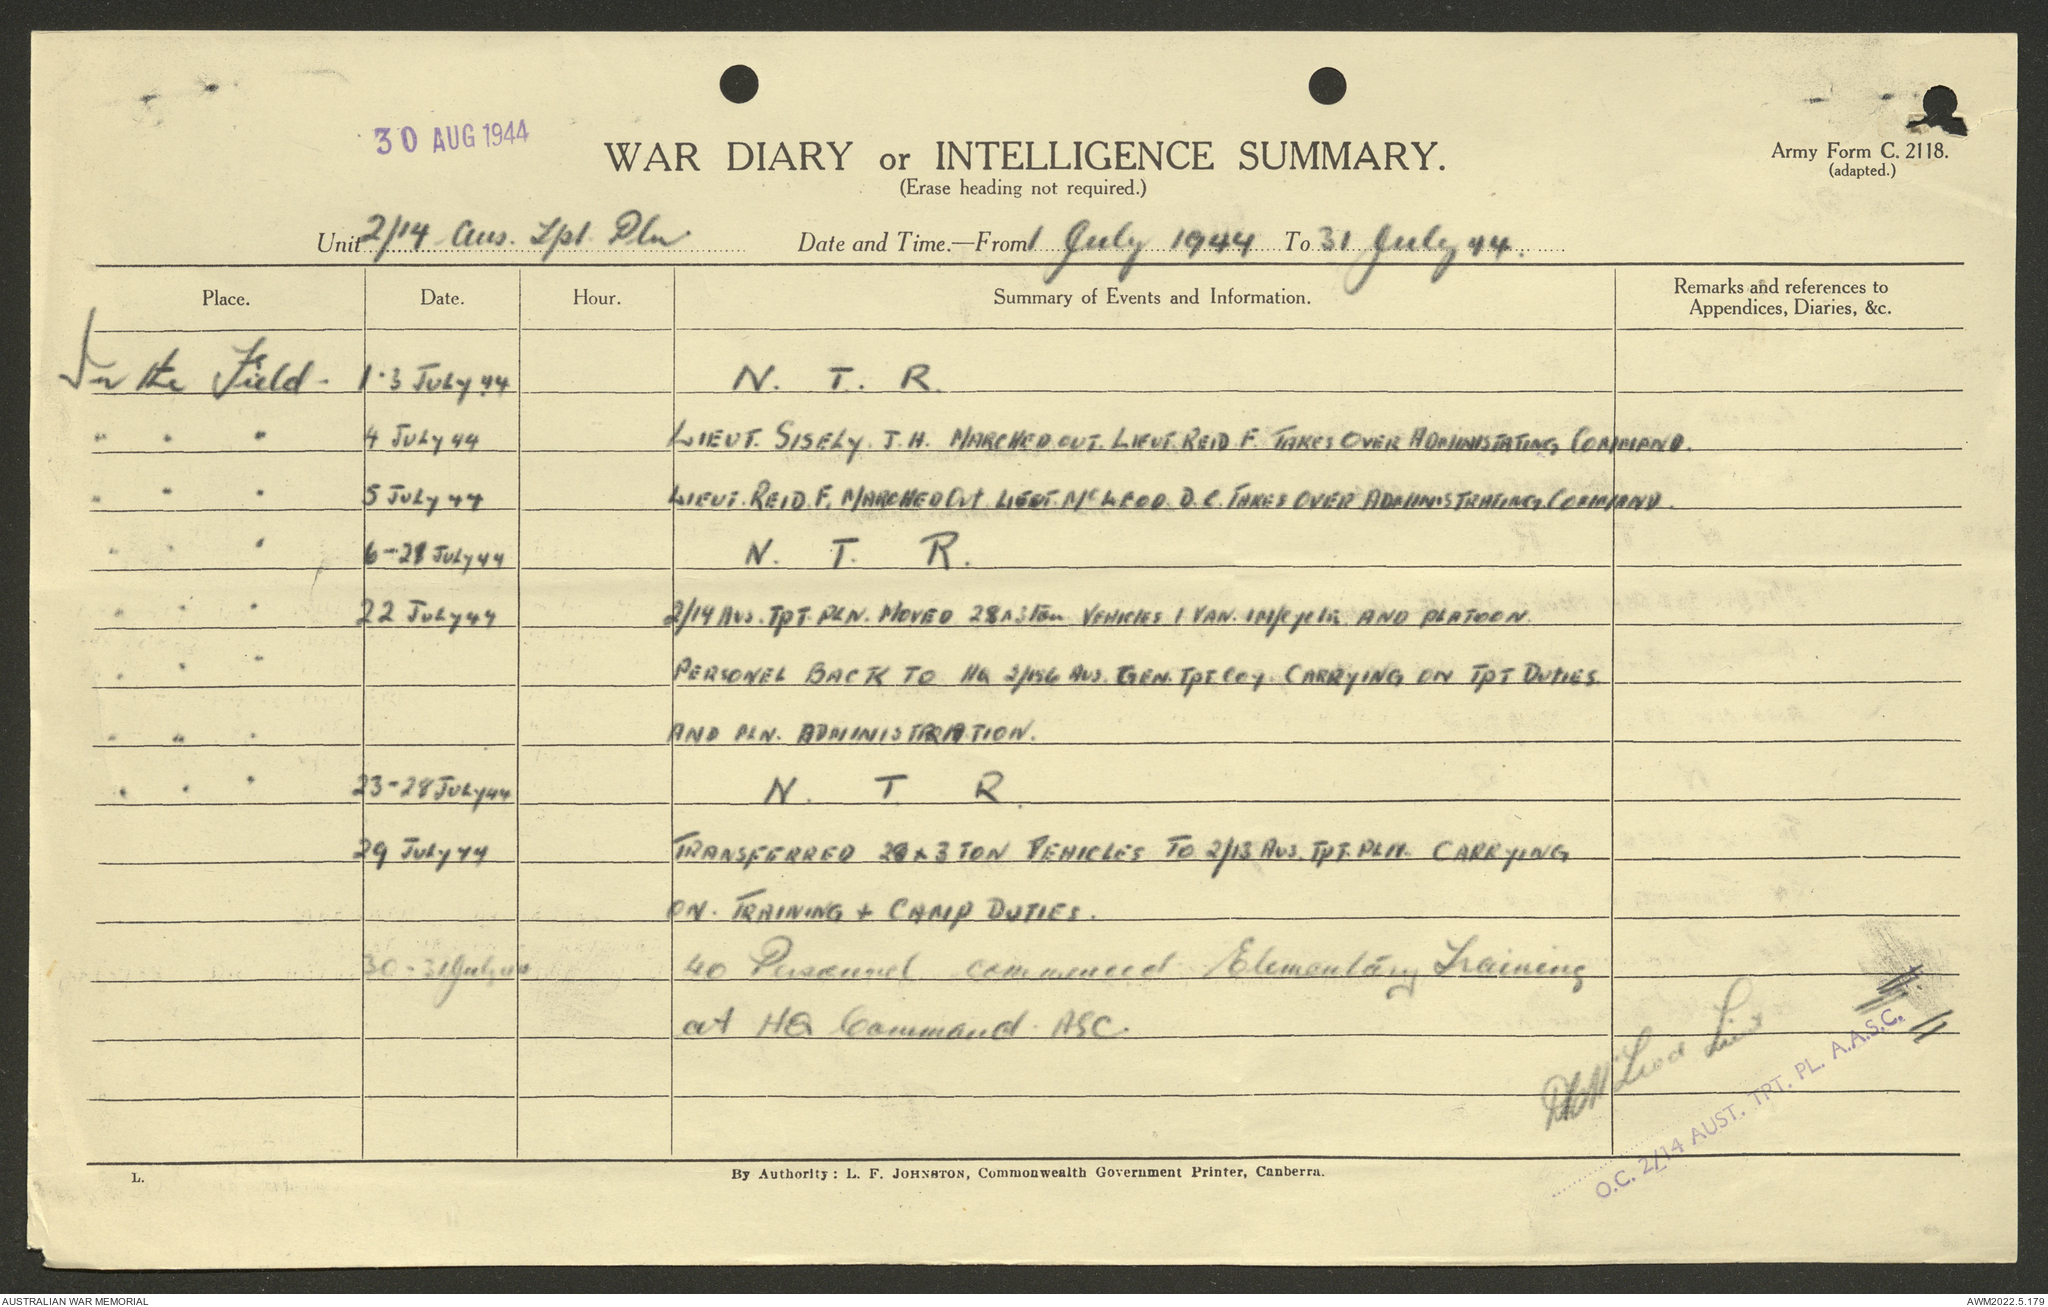 30 AUG 1944
WAR DIARY or INTELLIGENCE SUMMARY.
(Erase heading not required.)
Army Form C. 2118.
(adapted.)
Unit 2/14 Aus. Tpt. Pln. Date and Time.—From 1 July 1944 To 31 July 44.
Place. Date. Hour. Summary of Events and Information. Remarks and references to
Appendices, Diaries, &c.
In the Field - 1-3 JULY 44 N. T. R.
" " " 4 JULY 44 LIEUT. SISELY. J. H. MARCHED OUT. LIEUT. REID F. TAKES OVER ADMINISTATING COMMAND.
" " " 5 JULY 44 LIEUT. REID. F. MARCHED OUT. LIEUT. McLEOD. D. C. TAKES OVER ADMINISTRATING COMMAND.
" " " 6-21 JULY 44 N. T. R.
" " " 22 JULY 44 2/14 AUS. TPT. PLN. MOVED 28 x 3 Ton VEHICLES 1 VAN. 1 M/cycle AND PLATOON
" " " PERSONEL BACK TO HQ 2/156 AUS. GEN. TPT COY CARRYING ON TPT DUTIES.
" " " AND PLN. ADMINISTRATION.
" " " 23-28 JULY 44 N. T. R.
29 JULY 44 TRANSFERRED 28 x 3 TON VEHICLES TO 2/13 AUS. TPT. PLN. CARRYING
ON. TRAINING + CAMP DUTIES.
30-31 July 44 40 Personnel commenced Elementary Training
at HQ Command ASC.
McLeod Lieut
O.C. 2/14 AUST. TPT. PL. A.A.S.C.
L. By Authority: L. F. JOHNSTON, Commonwealth Government Printer, Canberra.
AUSTRALIAN WAR MEMORIAL AWM2022.5.179